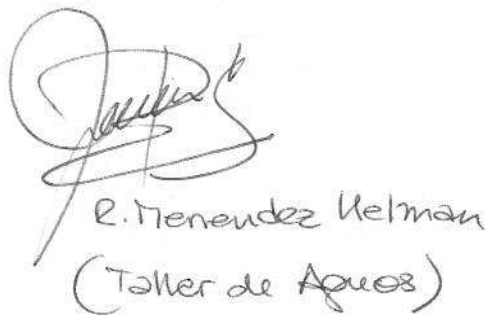 R. Menendez Helman
(Taller de Aguas)